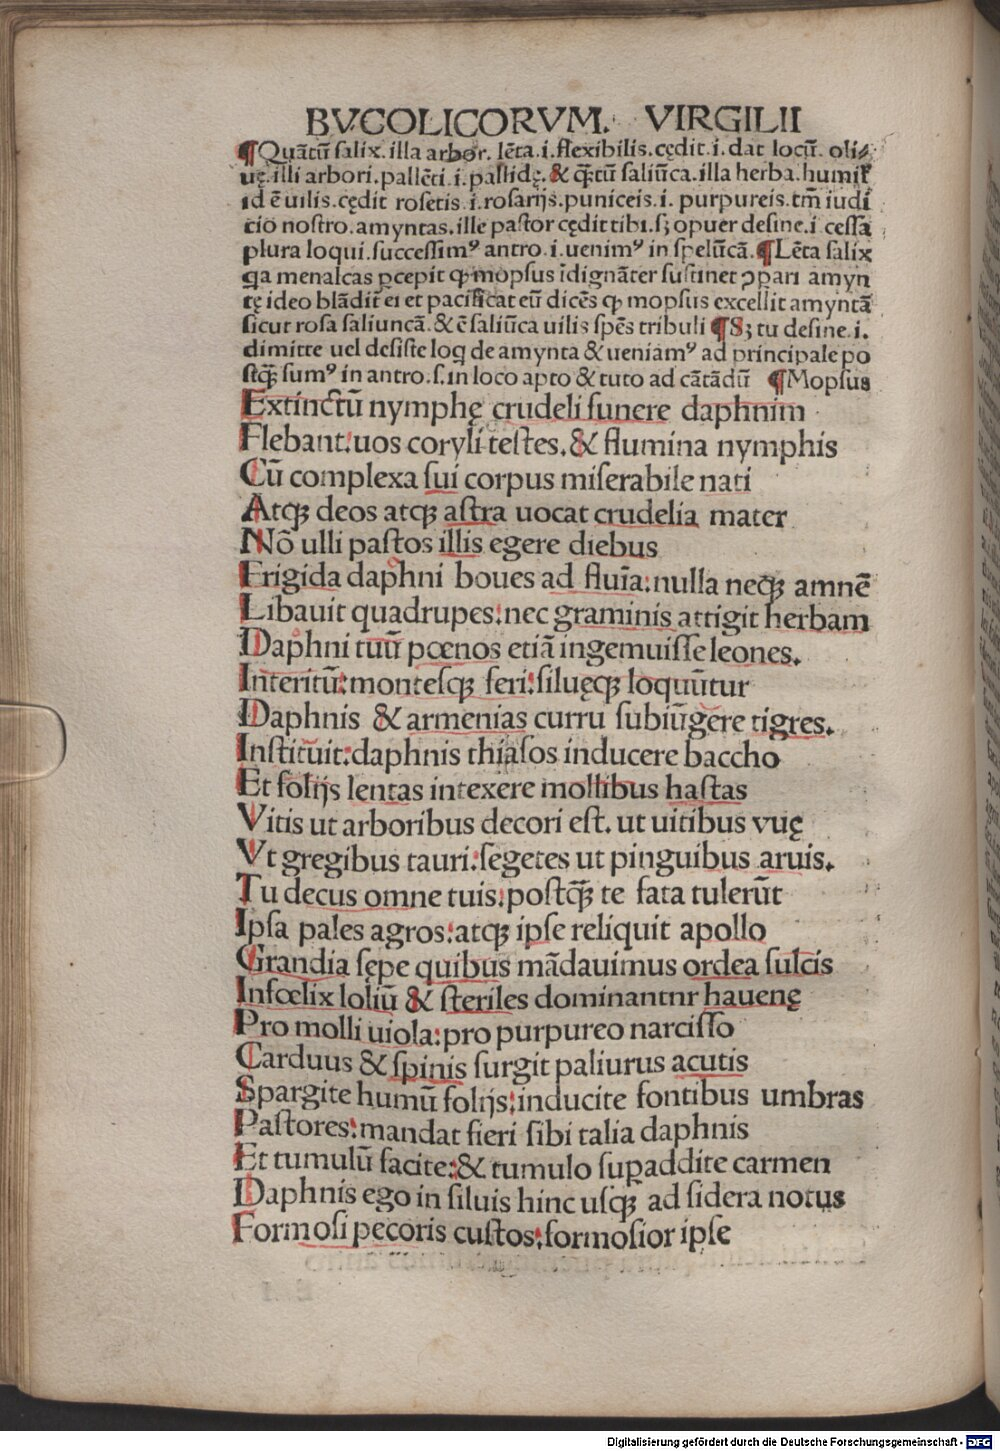 BVCOLICORVM. VIRGILII
¶Quātū salix.illa arbor.lēta.i.flexibilis.cędit.i.dat locū.oli⸗
uę.illi arbori.pallēti.i.pallidę.& q̄ʒtū saliūca.illa herba.humił
id ē uilis.cędit rosetis.i.rosarijs.puniceis.i.purpureis.tm̄ iudi
cio nostro.amyntas.ille pastor cędit tibi.sʒ opuer desine.i cessa
plura loqui.successimꝰ antro.i.uenimꝰ in spelūcā.¶Lēta salix
ꝗa menalcas ꝑcepit ꝙ mopsus īdignāter sustinet ↄꝑari amyn
tę ideo blādit̄ ei et pacificat eū dicēs ꝙ mopsus excellit amyntā
sicut rosa saliuncā.& ē saliūca uilis spēs tribuli ¶Sʒ tu desine.i.
dimitte uel desiste loꝗ de amynta & ueniamꝰ ad principale po
stq̄ʒ sumꝰ in antro.s.in loco apto & tuto ad cātādū ¶Mopsus
Extinctū nymphę crudeli funere daphnim
Flebant:uos coryli testes.& flumina nymphis
Cū complexa sui corpus miserabile nati
Atqʒ deos atqʒ astra uocat crudelia mater
Nō ulli pastos illis egere diebus
Frigida daphni boues ad fluīa:nulla neqʒ amnē
Libauit quadrupes:nec graminis attigit herbam
Daphni tuū pœnos etiā ingemuisse leones.
Interitū:montesqʒ feri:siluęqʒ loquūtur
Daphnis & armenias curru subiūgere tigres.
Instituit:daphnis thiasos inducere baccho
Et folijs lentas intexere mollibus hastas
Vitis ut arboribus decori est.ut uitibus vuę
Vt gregibus tauri:segetes ut pinguibus aruis.
Tu decus omne tuis:postq̄ʒ te fata tulerūt
Ipsa pales agros:atqʒ ipse reliquit apollo
Grandia sępe quibus mādauimus ordea sulcis
Infœlix loliū & steriles dominantnr hauenę
Pro molli uiola:pro purpureo narcisso
Carduus & spinis surgit paliurus acutis
Spargite humū folijs:inducite fontibus umbras
Pastores:mandat fieri sibi talia daphnis
Et tumulū facite:& tumulo suꝑaddite carmen
Daphnis ego in siluis hinc usqʒ ad sidera notus
Formosi pecoris custos:formosior ipse
Digitalisierung gefördert durch die Deutsche Forschungsgemeinschaft - DFG